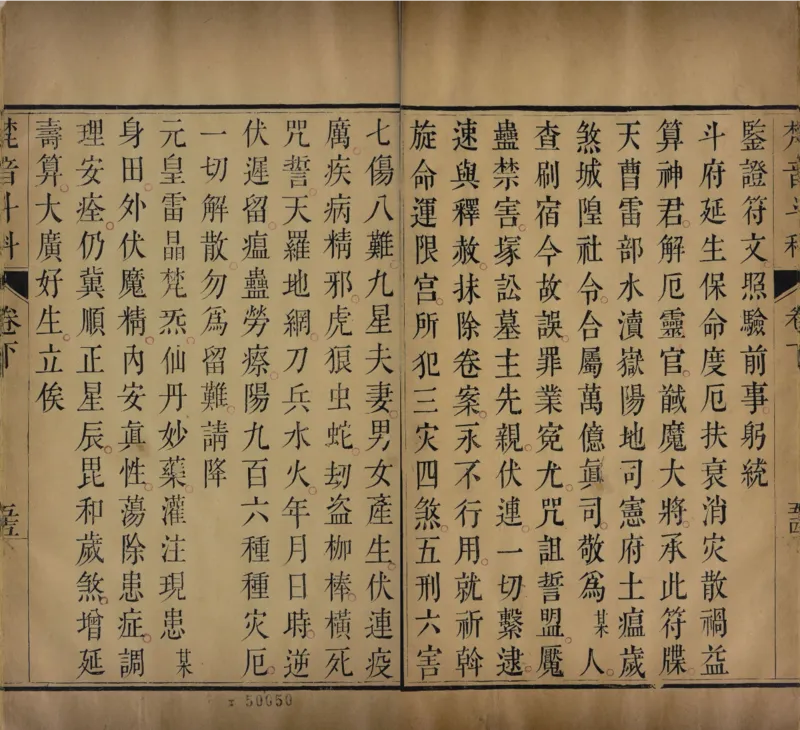 梵音斗科 卷下 五十三
鍳證符文照驗前事躬統
斗府延生保命度厄扶衰消灾散禍益
算神君。解厄靈官。馘魔大將。承此符牒。
天曹雷部水瀆嶽陽地司憲府土瘟歲
煞城隍社令。合屬萬億眞司。敬爲某人。
查刷宿今故誤罪業寃尤。咒詛誓盟。魘
蠱禁害。塚訟墓主先親。伏連一切繫逮。
速與釋赦。抹除卷案。永不行用。就祈斡
旋命運限宮。所犯三灾四煞。五刑六害
七傷八難。九星夫妻。男女產生。伏連疫
厲。疾病精邪。虎狼虫蛇。刧盜枷棒。橫死
咒誓。天羅地網。刀兵水火。年月日時。逆
伏遲留。瘟蠱勞瘵。陽九百六。種種灾厄。
一切解散。勿爲留難。請降
元皇雷晶梵炁。仙丹妙藥。灌注現患某
身田。外伏魔精。內安眞性。蕩除患症。調
理安痊。仍冀順正星辰。毘和歲煞。增延
壽算。大廣好生。立俟
梵音斗科 卷下
50050